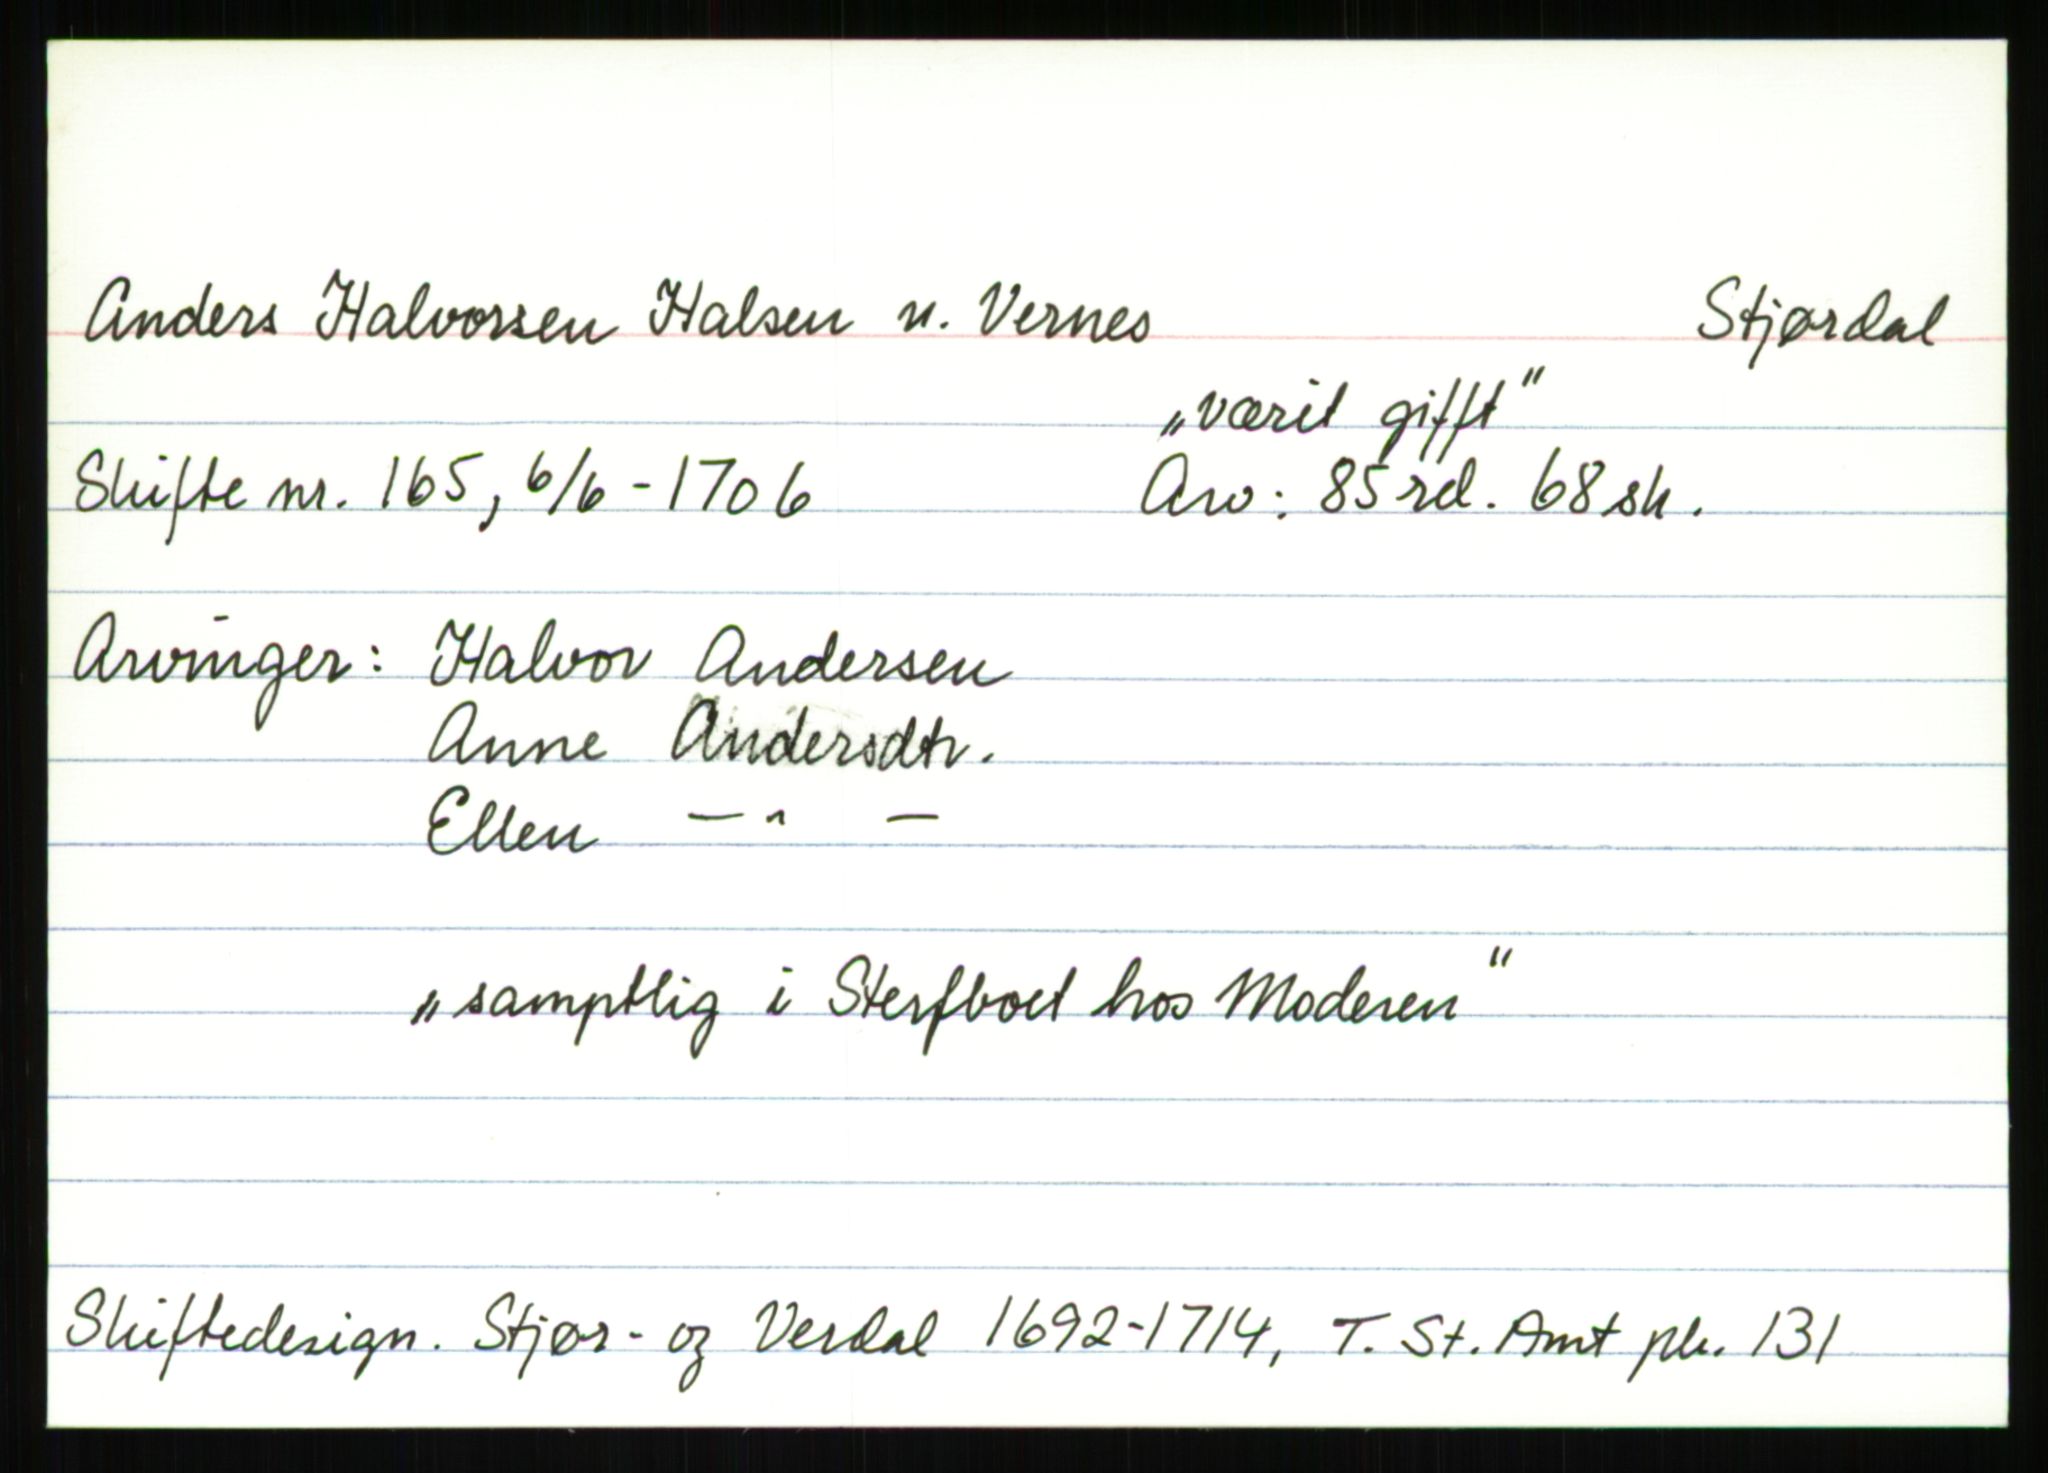 Anders Halvorsen Halsen u. Vernes Stjørdal
„værit gifft“
Skifte nr. 165, 6/6-1706 Arv: 85 rd. 68 sk.
Arvinger: Halvor Andersen
Anne Andersdtr.
Ellen — " —
„samptlig i Sterfboet hos Moderen“
Skiftedesign. Stjør- og Verdal 1692-1714, T. St. Amt pk. 131